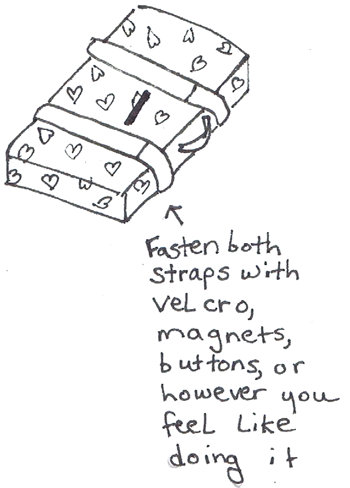 Fasten both
straps with
velcro,
magnets,
buttons, or
however you
feel like
doing it